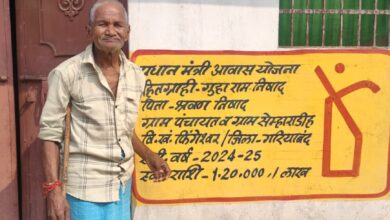 प्रधान मंत्री आवास योजना
हितग्राही - गुहा राम निषाद
पिता - श्रवण निषाद
ग्राम पंचायत व ग्राम सेम्हराडीह
वि.खं. फिंगेश्वर / जिला - गरियाबंद
वर्ष - 2024-25
राशि - 1,20,000 ./ लाख